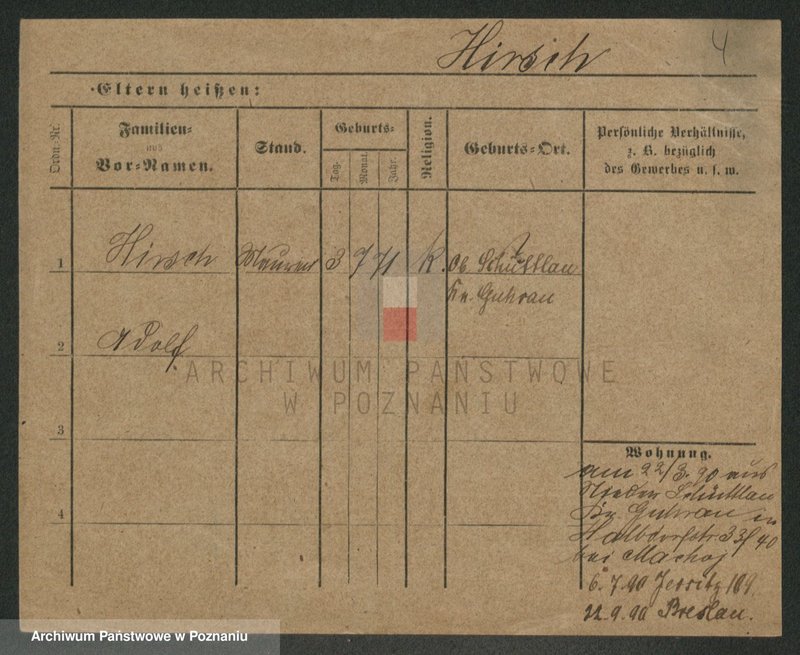 Hirsch
4
Eltern heißen:
Ordn. Nr.
Familien-
und
Vor-Namen.
Stand.
Geburts-
Tag.
Monat
Jahr.
Religion.
Geburts-Ort.
Persönliche Verhältnisse,
z. B. bezüglich
des Gewerbes u. s. w.
1 Hirsch Maurer 3 7 71 K. Ob. Schüttlau
Kr. Guhrau
2 Adolf
3
4
Wohnung.
am 22/3. 90 aus
Nieder Schüttlau
Kr. Guhrau in
Halbdorfstr. 33/40
bei Machoj
6. 7. 90 Jersitz 109
22. 9. 90 Breslau.
ARCHIWUM PAŃSTWOWE
W POZNANIU
Archiwum Państwowe w Poznaniu